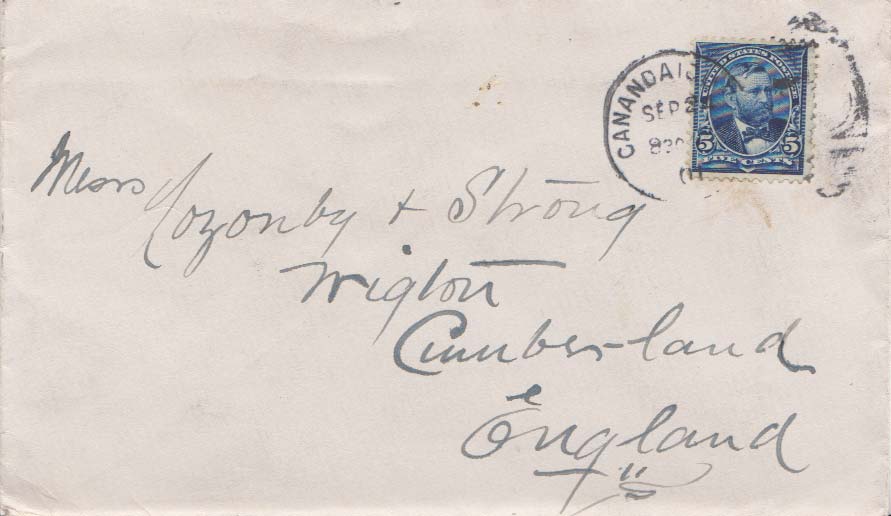 CANANDAIG
SEP 2
830
01
UNITED STATES POSTAGE
5 5
FIVE CENTS
Messrs
& Strong
Wigton
Cumberland
England